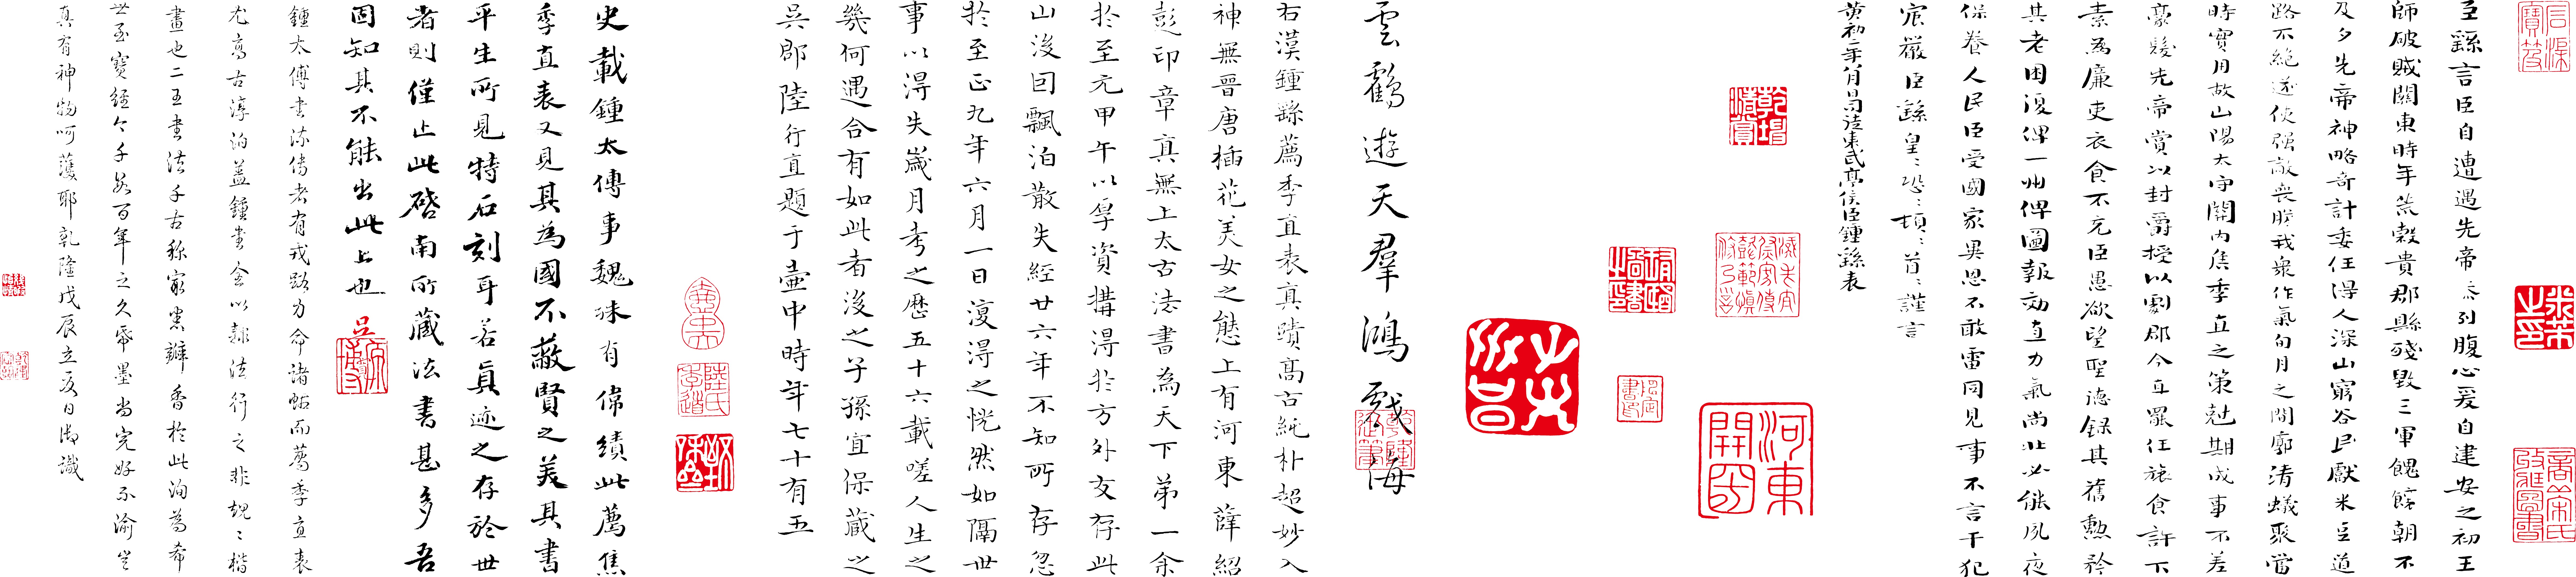 臣繇言臣自遭遇先帝忝列腹心爰自建安之初王
師破賊關東時年荒穀貴郡縣殘毀三軍餽饟朝不
及夕先帝神略奇計委任得人深山窮谷民獻米豆道
路不絕遂使強敵喪膽我眾作氣旬月之間廓清蟻聚當
時實用故山陽太守關內侯季直之策剋期成事不差
豪髮先帝賞以封爵授以劇郡今直罷任旅食許下
素為廉吏衣食不充臣愚欲望聖德錄其舊勳矜
其老困復俾一州俾圖報效直力氣尚壯必能夙夜
保養人民臣受國家異恩不敢雷同見事不言干犯
宸嚴臣繇皇〻恐〻頓〻首〻謹言
黃初二年八月日司徒東武亭侯臣鍾繇表
河東
開國
雲鶴遊天羣鴻戲海
乾隆
宸筆
右漢鍾繇薦季直表真蹟高古純朴超妙入
神無晉唐插花美女之態上有河東薛紹
彭印章真無上太古法書為天下第一余
於至元甲午以厚資購得於方外友存此
山後因飄泊散失經廿六年不知所存忽
於至正九年六月一日復得之恍然如隔世
事以得失歲月考之歷五十六載嗟人生之
幾何遇合有如此者後之子孫宜保藏之
吳郡陸行直題于壺中時年七十有五
陸氏
季道
史載鍾太傅事魏殊有偉績此薦焦
季直表又見其為國不蔽賢之美其書
平生所見特石刻耳若真迹之存於世
者則僅止此啓南所藏法書甚多吾
固知其不能出此上也
吳
鍾太傅書流傳者有戎路力命諸帖而薦季直表
尤高古淳泊蓋鍾書全以隸法行之非規〻楷
畫也二王書法千古稱家

香於此洵為希
世至寶經今千數百年之久帋墨尚完好不渝豈
真有神物呵護耶乾隆戊辰立夏日御識